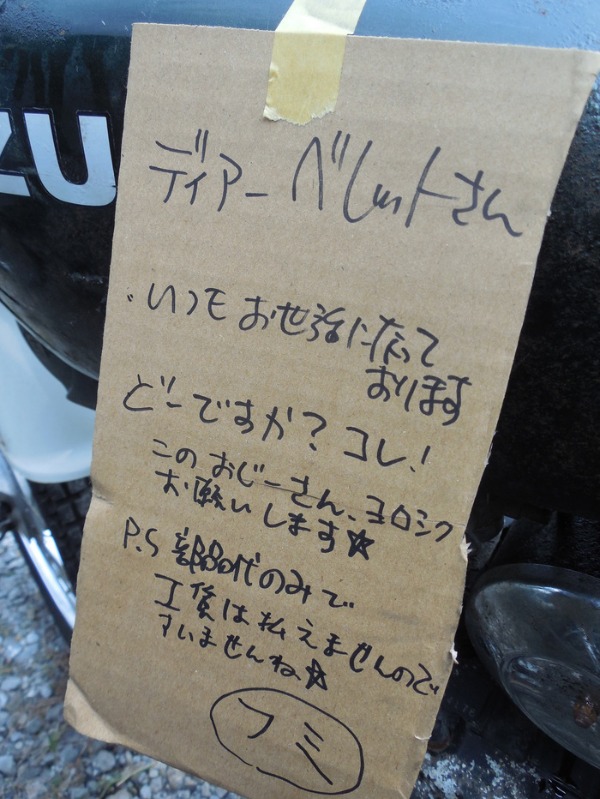 ZU
ディアー ベレットさん
・いつもお世話になって
おります
どーですか？コレ！
このおじーさん、ヨロシク
お願いします☆
P.S 部品代のみで
工賃は払えませんので
すいませんね☆
フミ